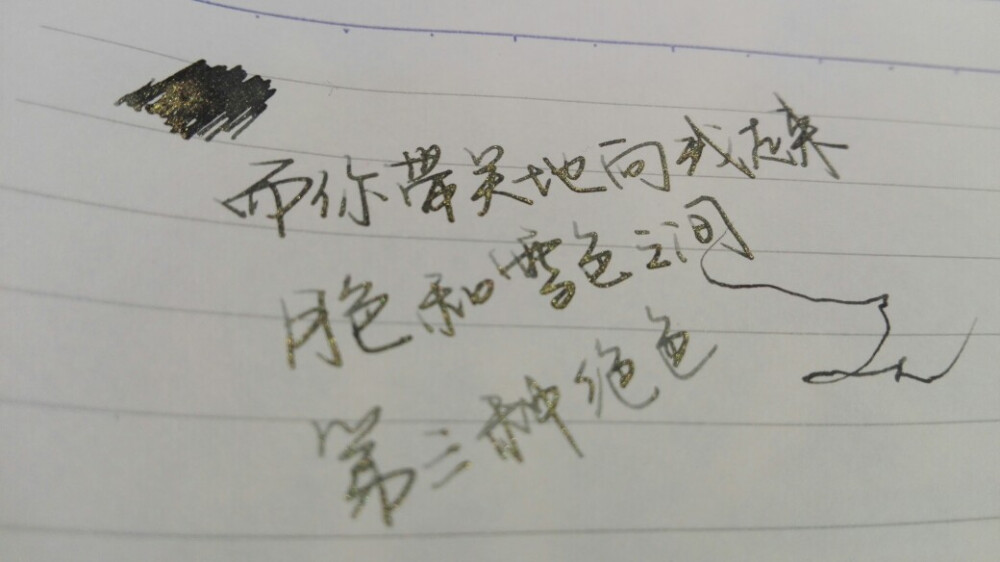 而你带笑地向我走来
月色和雪色之间
第三种绝色